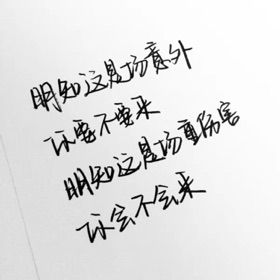 明知这是场意外
你要不要来
明知这是场重伤害
你会不会来